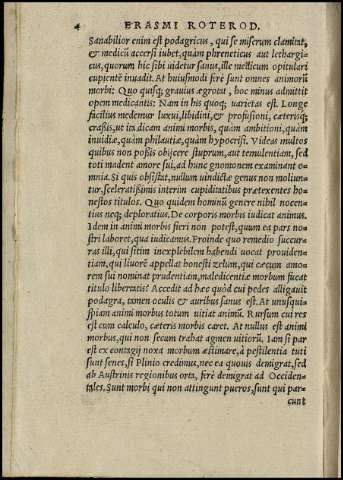 4 ERASMI ROTEROD.
Sanabilior enim est podagricus, qui se miserum clamitat,
& medicū accersi iubet, quàm phreneticus aut lethargi-
cus, quorum hic sibi uidetur sanus, ille medicum opitulari
cupientē inuadit. At huiusmodi ferè sunt omnes animorū
morbi: Quo quisq; grauius ægrotat, hoc minus admittit
opem medicantis: Nam in his quoq; uarietas est. Longe
facilius medemur luxui, libidini, & profusioni, cæterisq;
crassis, ut ita dicam animi morbis, quàm ambitioni, quàm
inuidiæ, quàm philautiæ, quàm hypocrisi. Videas multos
quibus non possis obijcere stuprum, aut temulentiam, sed
toti madent amore sui, ad hunc gnomonem examinant o-
mnia. Si quis obsistat, nullum uindictæ genus non moliun-
tur, sceleratißimis interim cupiditatibus prætexentes ho-
nestos titulos. Quo quidem hominū genere nihil nocen-
tius neq; deploratius. De corporis morbis iudicat animus.
Idem in animi morbis fieri non potest, quum ea pars no-
stri laboret, qua iudicamus. Proinde quo remedio succur-
ras illi, qui sitim inexplebilem habendi uocat prouiden-
tiam, qui liuorē appellat honesti zelum, qui cæcum amo-
rem sui nominat prudentiam, maledicentiæ morbum fucat
titulo libertatis? Accedit ad hæc quòd cui pedes alligauit
podagra, tamen oculis & auribus sanus est. At unusqui-
spiam animi morbus totum uitiat animū. Rursum cui res
est cum calculo, cæteris morbis caret. At nullus est animi
morbus, qui non secum trahat agmen uitiorū. Iam si par
est ex contagij noxa morbum æstimare, à pestilentia tuti
sunt senes, si Plinio credimus, nec ea quouis demigrat, sed
ab Austrinis regionibus orta, ferè demigrat ad Occiden-
tales. Sunt morbi qui non attingunt pueros, sunt qui par-
cunt